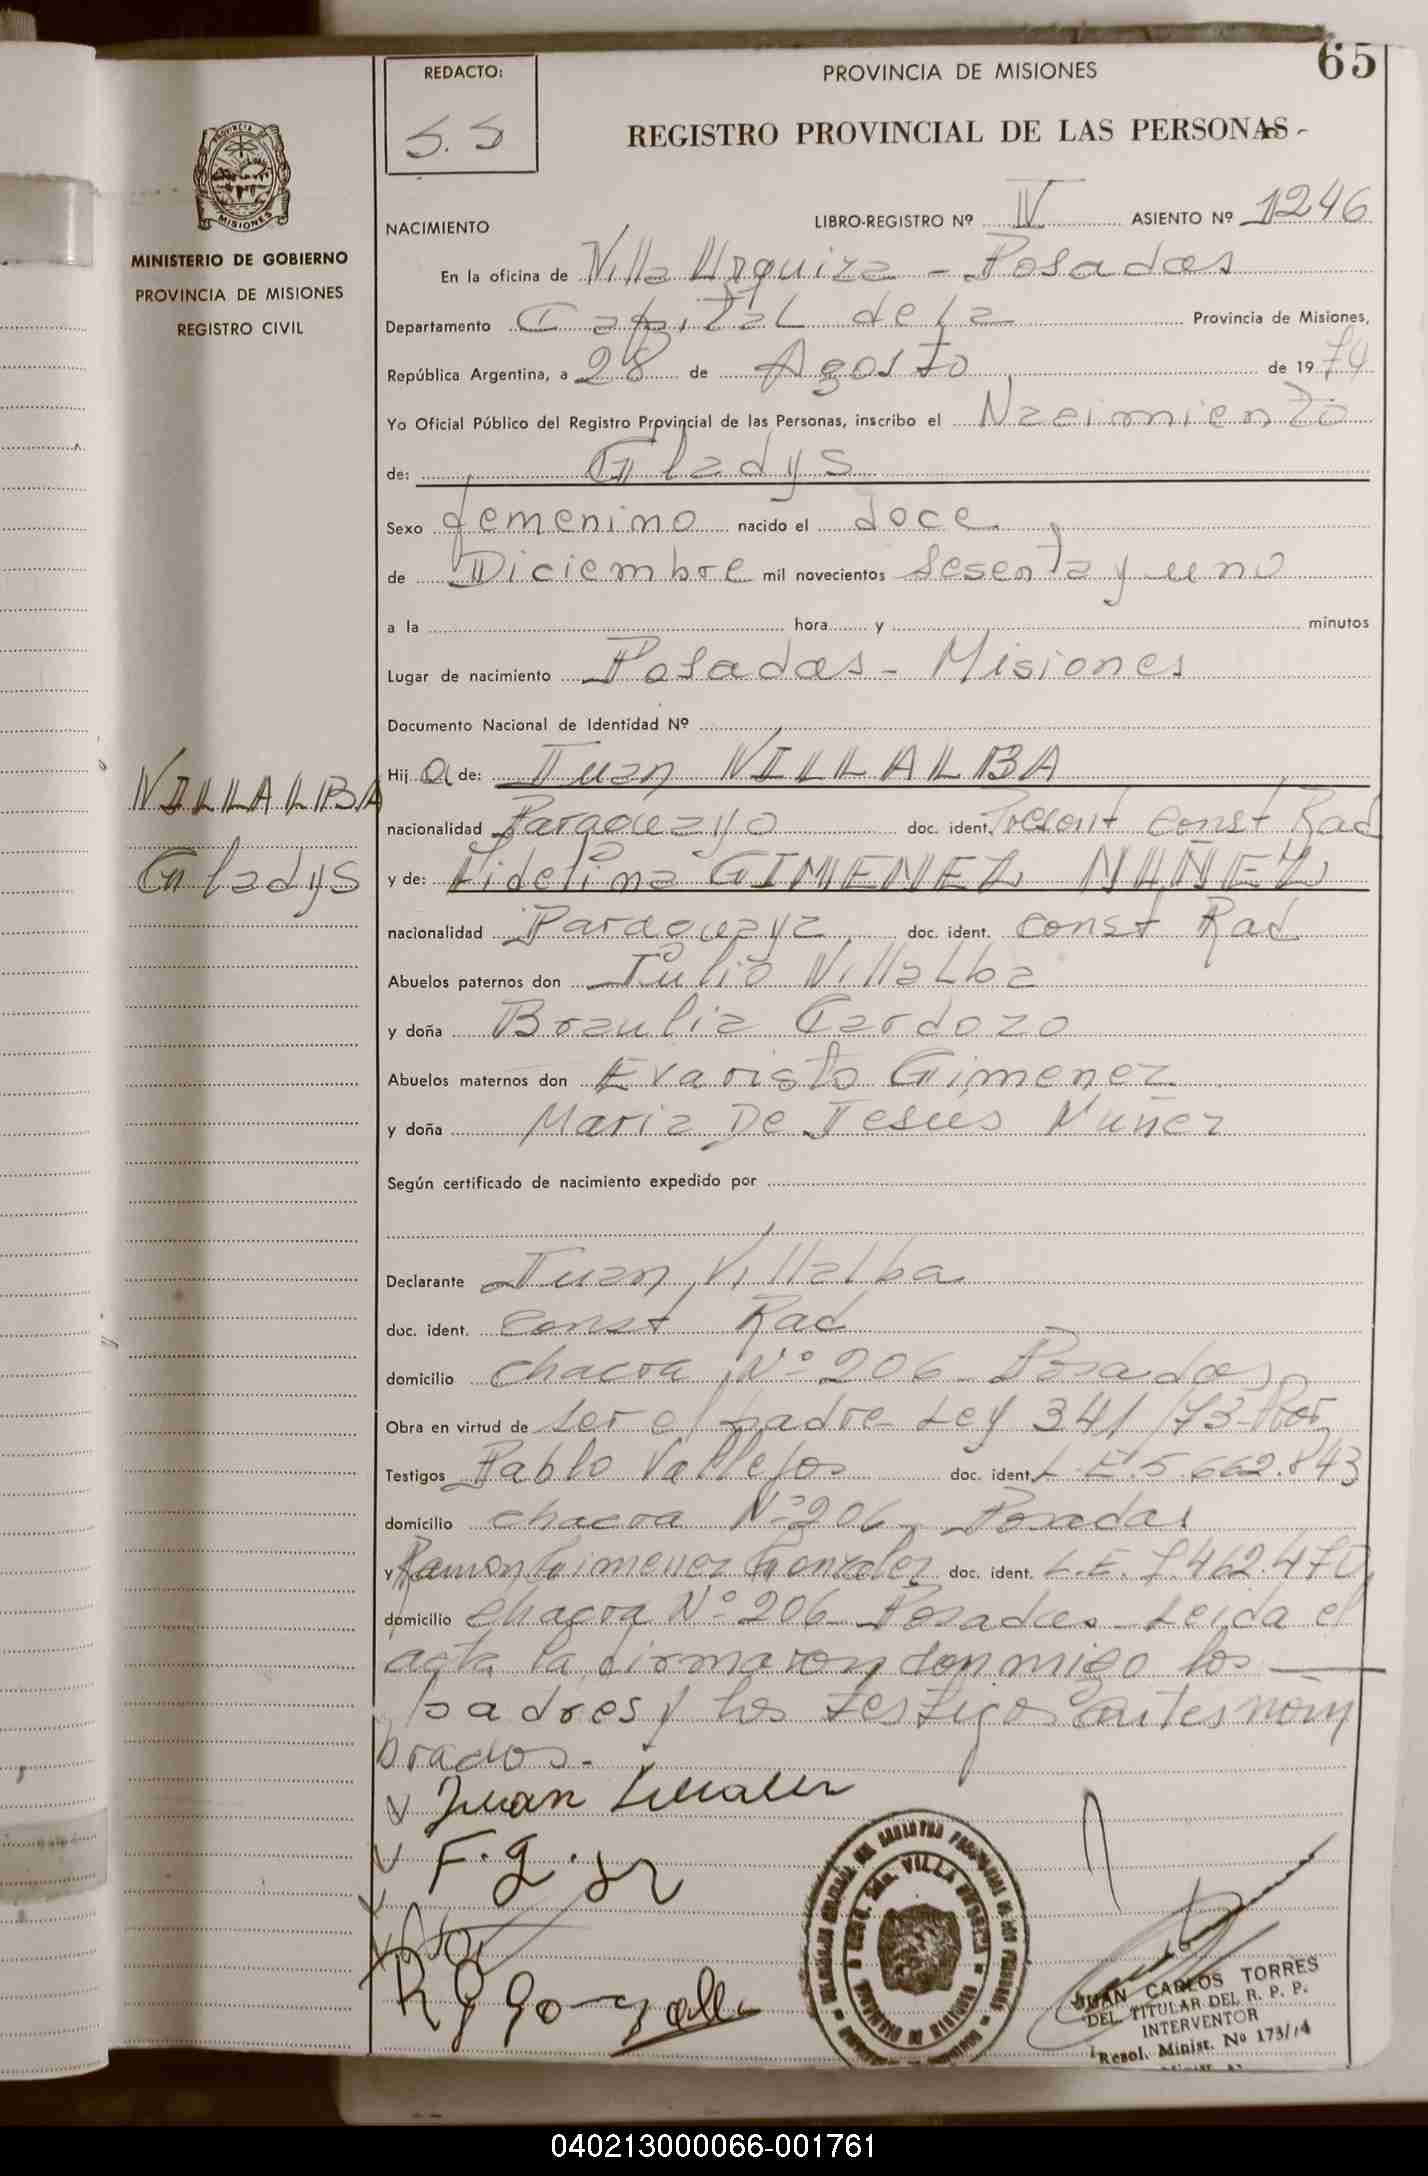 65
REDACTO:
S. S
PROVINCIA DE MISIONES
REGISTRO PROVINCIAL DE LAS PERSONAS -
PROVINCIA
MISIONES
MINISTERIO DE GOBIERNO
PROVINCIA DE MISIONES
REGISTRO CIVIL
NACIMIENTO LIBRO-REGISTRO Nº IV ASIENTO Nº 1246
En la oficina de Villa Urquiza - Posadas
Departamento Capital de La Provincia de Misiones,
República Argentina, a 28 de Agosto de 1974
Yo Oficial Público del Registro Provincial de las Personas, inscribo el Nacimiento
de: Gladys
Sexo femenino nacido el doce
de Diciembre mil novecientos sesenta y uno
a la hora y minutos
Lugar de nacimiento Posadas - Misiones
Documento Nacional de Identidad Nº
VILLALBA
Gladys
Hij a de: Juan VILLALBA
nacionalidad Paraguayo doc. ident. Present const Rad
y de: Fidelina GIMENEZ NUÑEZ
nacionalidad Paraguaya doc. ident. const Rad
Abuelos paternos don Julio Villalba
y doña Braulia Cardozo
Abuelos maternos don Evaristo Gimenez
y doña Maria De Jesús Nuñez
Según certificado de nacimiento expedido por
Declarante Juan Villalba
doc. ident. const Rad
domicilio chacra Nº 206 Posadas
Obra en virtud de ser el padre - Ley 341/73 - Por
Testigos Pablo Vallejos doc. ident. L.E. 5.662.843
domicilio chacra Nº 206 Posadas
y Ramon Gimenez Gonzalez doc. ident. L.E. 7.462.470
domicilio chacra Nº 206 Posadas - Leida el
acta la firmaron conmigo los
padres y los testigos antes nom
brados.-
Juan
F. G.
R G Gonzalez
VILLA URQUIZA
JUAN CARLOS TORRES
DEL TITULAR DEL R. P. P.
INTERVENTOR
Resol. Minist. Nº 173/74
040213000066-001761